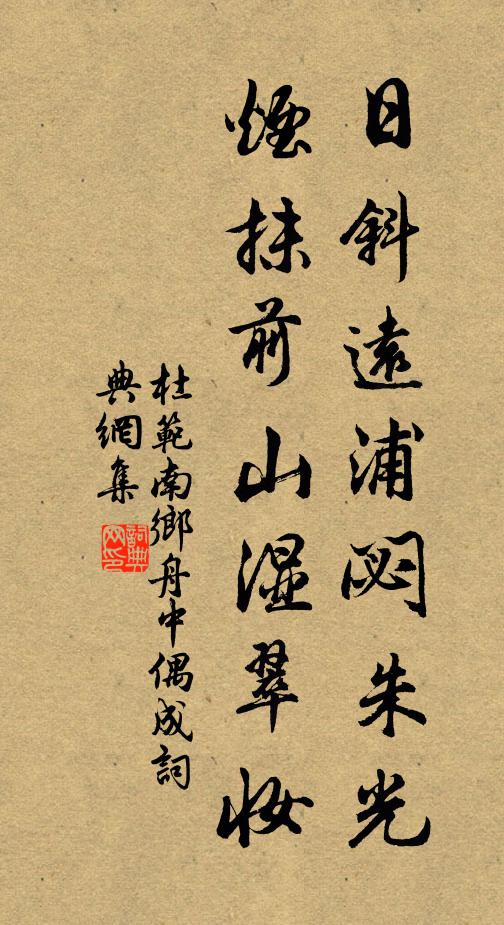 日斜遠浦閟朱光
煙抹前山濕翠妝
杜範南鄉舟中偶成詞
典網集
詞典
网印